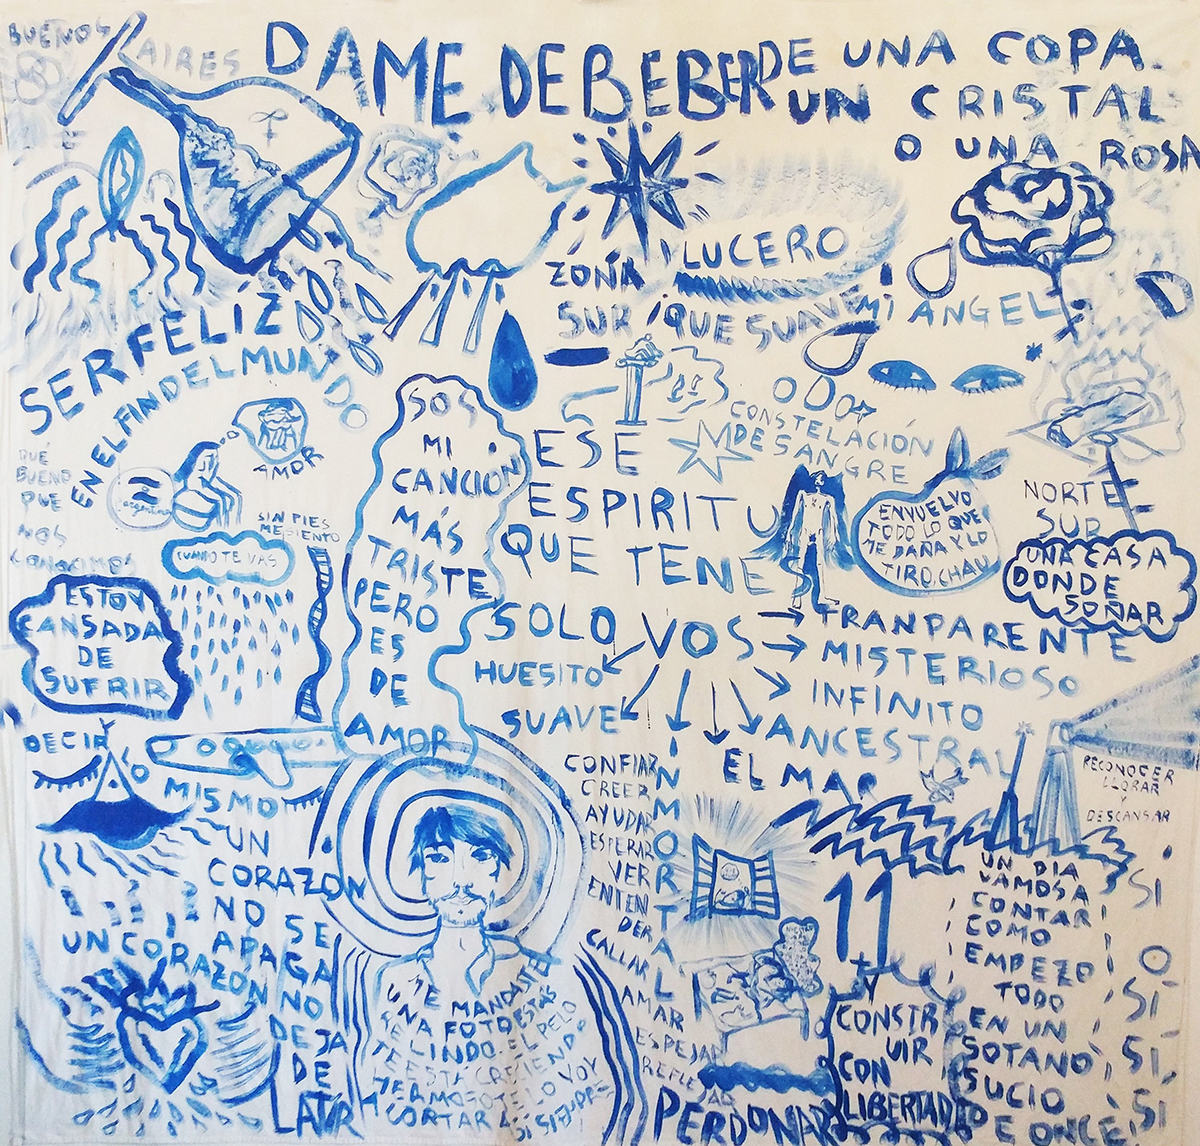 BUENOS
AIRES
DAME DE BEBER DE UNA COPA
UN CRISTAL
O UNA ROSA
LUCERO
ZONA
SUR
QUE SUAVE
MI ANGEL
SER FELÍZ
EN EL FIN DEL MUNDO
AMOR
QUÉ
BUENO
QUE
NOS
CONOCIMOS
argentina
SIN PIES
ME SIENTO
CUANDO TE VAS
ESTOY
CANSADA
DE
SUFRIR
SOS
MI
CANCIÓN
MÁS
TRISTE
PERO
ES
DE
AMOR
ODO
CONSTELACIÓN
DE SANGRE
ESE
ESPIRITU
QUE TENES
SOLO VOS
HUESITO
SUAVE
TRANPARENTE
MISTERIOSO
INFINITO
ANCESTRAL
EL MAR
INMORTAL
ENVUELVO
TODO LO QUE
ME DAÑA Y LO
TIRO, CHAU
NORTE
SUR
UNA CASA
DONDE
SOÑAR
RECONOCER
LLORAR
Y
DESCANSAR
Y
DECIR
LO
MISMO
UN
CORAZON
NO SE
APAGA
UN CORAZON
NO
DEJA
DE
LATIR
CONFIAR
CREER
AYUDAR
ESPERAR
VER
ENTEN
DER
CALLAR
AMAR
ESPEJAR
REFLE
JAR
PERDONAR
TE MANDASTE
UNA FOTO ESTÁS
RE LINDO. EL PELO
TE ESTÁ CRECIENDO
HERMOSO TE LO VOY
A CORTAR
SI SIEMPRE
11
Y
CONSTR
UIR
CON
LIBERTAD
UN DIA
VAMOS A
CONTAR
COMO
EMPEZO
TODO
EN UN
SOTANO
SUCIO
DE ONCE
SI
O
SI
SI
SI